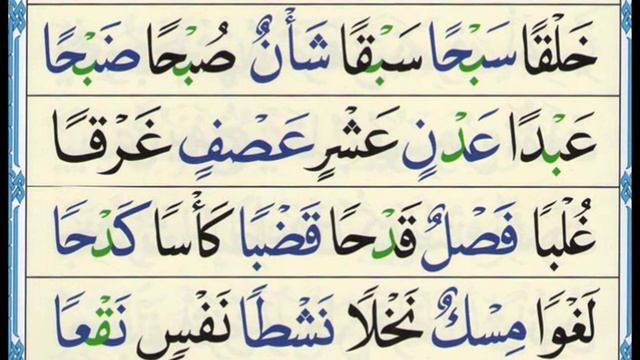 خَلْقًا سَبْحًا سَبْقًا شَأْنٌ صُبْحًا ضَبْحًا
عَبْدًا عَدْنٍ عَشْرٍ عَصْفٍ غَرْقًا
غُلْبًا فَصْلٌ قَدْحًا قَضْبًا كَأْسًا كَدْحًا
لَغْوًا مِسْكٌ نَخْلًا نَشْطًا نَفْسٍ نَقْعًا